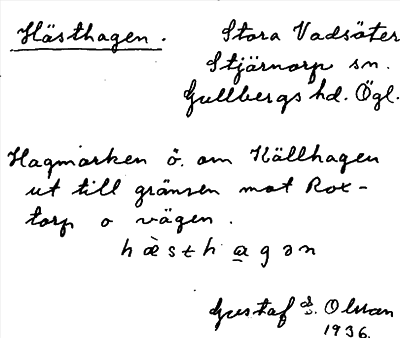 Hästhagen.
Stora Vadsäter
Stjärnorp sn.
Gullbergs hd. Ögl.
Hagmarken ö. om Källhagen
ut till gränsen mot Rox-
torp o vägen.
hæ̀sth a̲gən
Gustaf S. Olsson
1936.